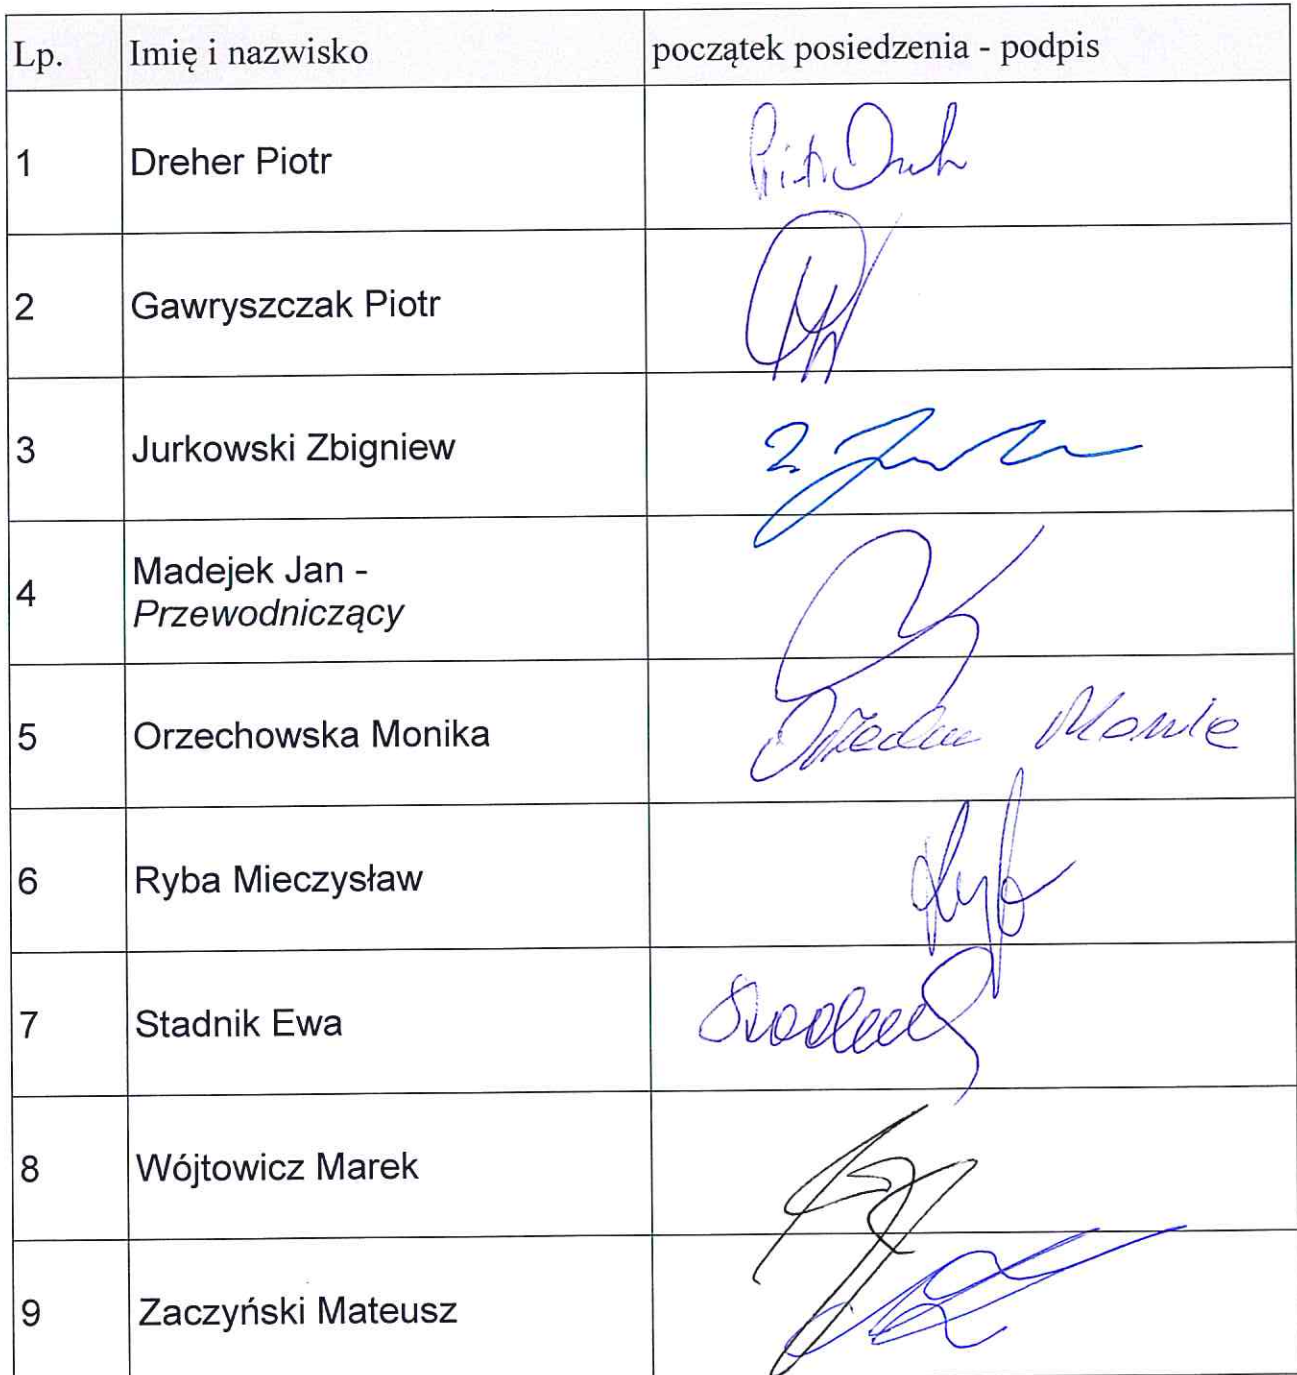 Lp. Imię i nazwisko początek posiedzenia - podpis
1 Dreher Piotr
2 Gawryszczak Piotr
3 Jurkowski Zbigniew
4 Madejek Jan -
Przewodniczący
5 Orzechowska Monika
6 Ryba Mieczysław
7 Stadnik Ewa
8 Wójtowicz Marek
9 Zaczyński Mateusz